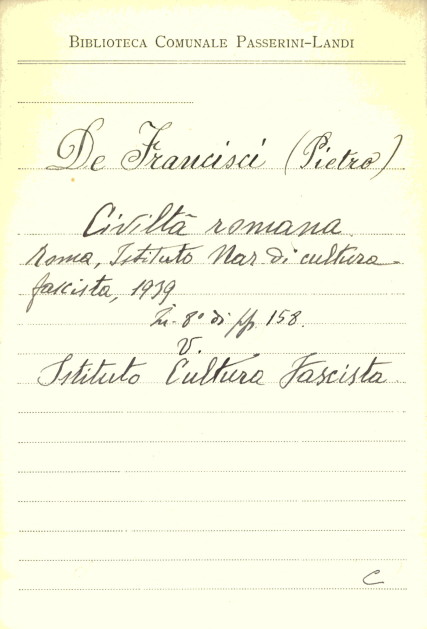 BIBLIOTECA COMUNALE PASSERINI-LANDI
De Francisci (Pietro)
Civiltà romana
Roma, Istituto Naz. di cultura
fascista, 1939
In-8° di pp. 158.
V.
Istituto Cultura Fascista
C